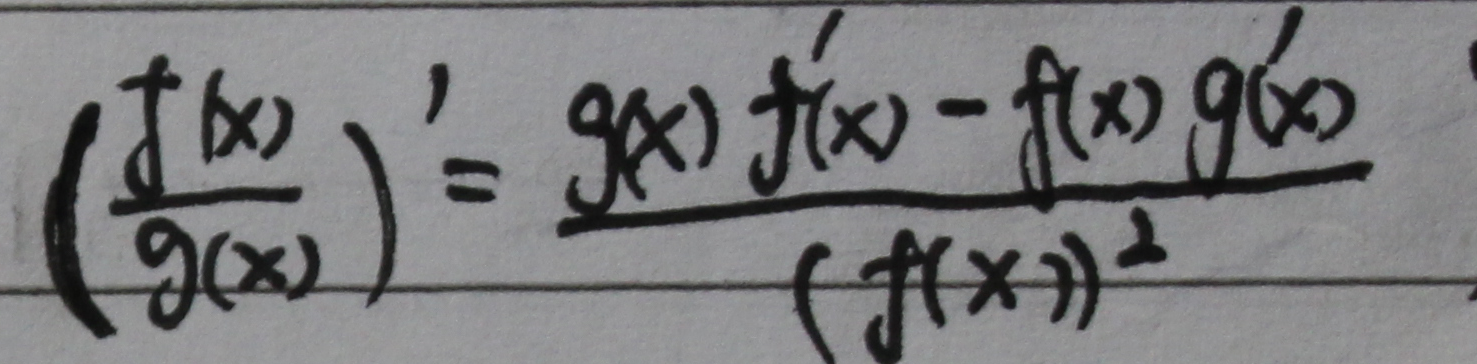 (f(x)/g(x))' = (g(x) f'(x) - f(x) g'(x))/(f(x))²